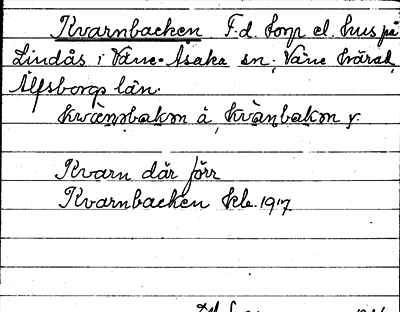 Kvarnbacken F.d. torp el. hus på
Lindås i Väne-Åsaka sn, Väne härad,
Älfsborgs län.
å, y.
Kvarn där förr
Kvarnbacken 1917